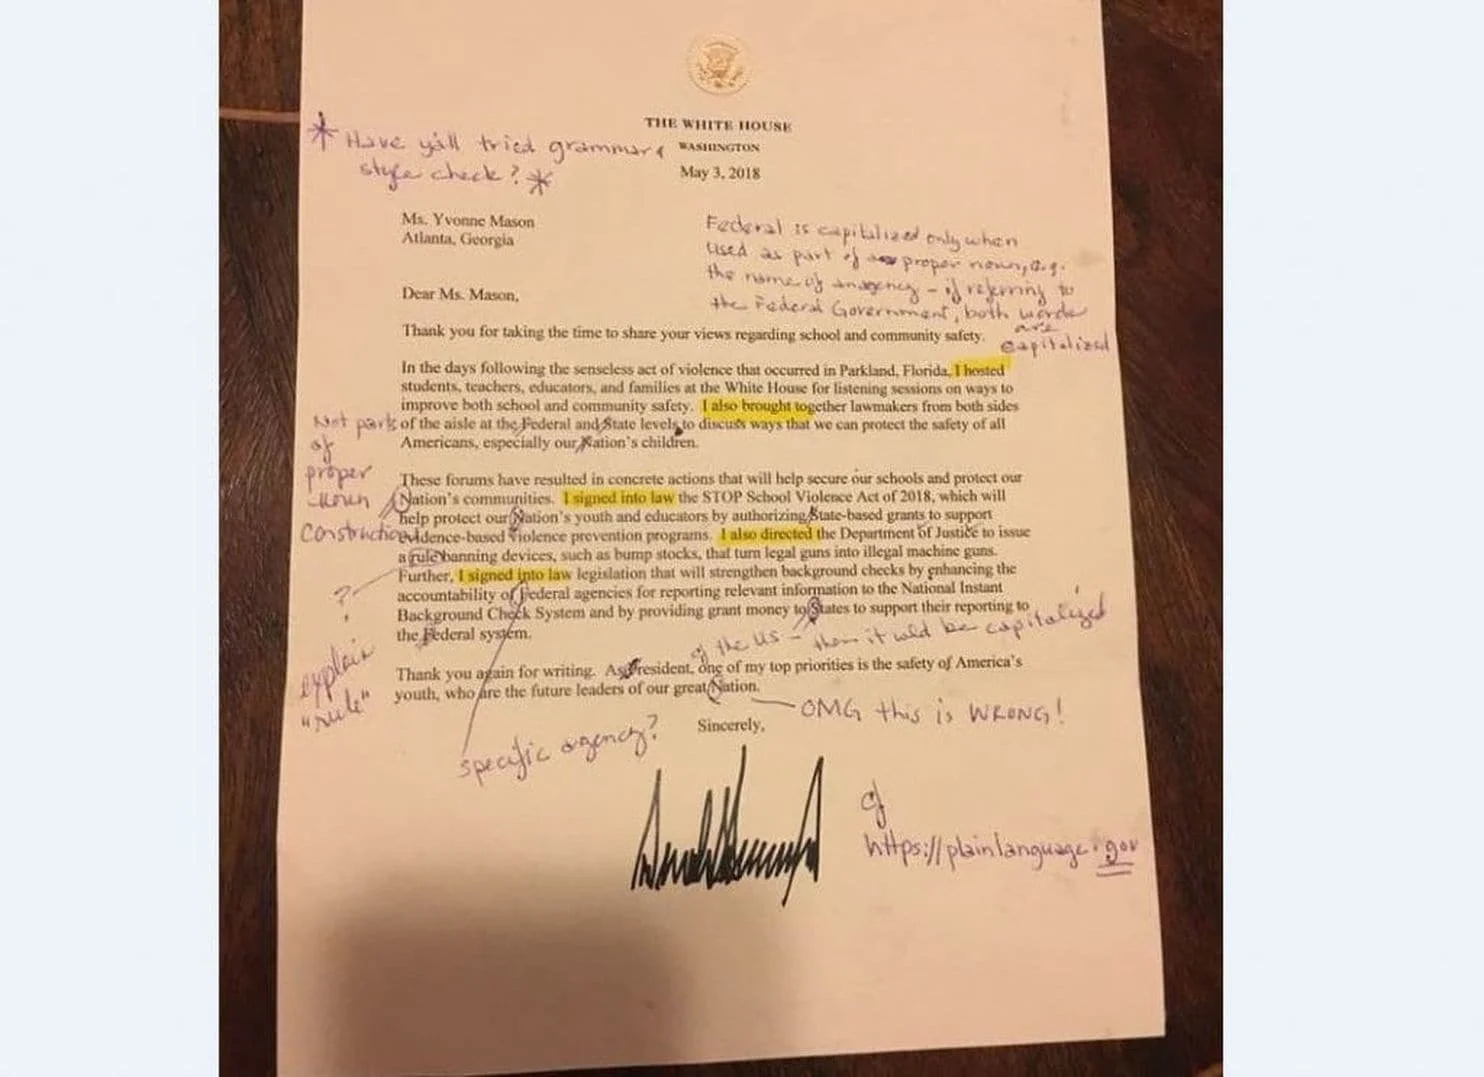 THE WHITE HOUSE
WASHINGTON
May 3, 2018
* Have y'all tried grammar &
style check? *
Ms. Yvonne Mason
Atlanta, Georgia
Federal is capitalized only when
used as part of proper noun, e.g.
the name of an agency – if referring to
the Federal Government, both words
are
capitalized
Dear Ms. Mason,
Thank you for taking the time to share your views regarding school and community safety.
In the days following the senseless act of violence that occurred in Parkland, Florida, I hosted
students, teachers, educators, and families at the White House for listening sessions on ways to
improve both school and community safety. I also brought together lawmakers from both sides
of the aisle at the Federal and State levels to discuss ways that we can protect the safety of all
Americans, especially our Nation's children.
Not part
of
proper
noun
construction
These forums have resulted in concrete actions that will help secure our schools and protect our
Nation's communities. I signed into law the STOP School Violence Act of 2018, which will
help protect our Nation's youth and educators by authorizing State-based grants to support
evidence-based violence prevention programs. I also directed the Department of Justice to issue
a rule banning devices, such as bump stocks, that turn legal guns into illegal machine guns.
Further, I signed into law legislation that will strengthen background checks by enhancing the
accountability of Federal agencies for reporting relevant information to the National Instant
Background Check System and by providing grant money to States to support their reporting to
the Federal system.
?
explain
"rule"
of the US – then it wld be capitalized
Thank you again for writing. As President, one of my top priorities is the safety of America's
youth, who are the future leaders of our great Nation.
OMG this is WRONG!
Sincerely,
specific agency?
cf
https://plainlanguage.gov